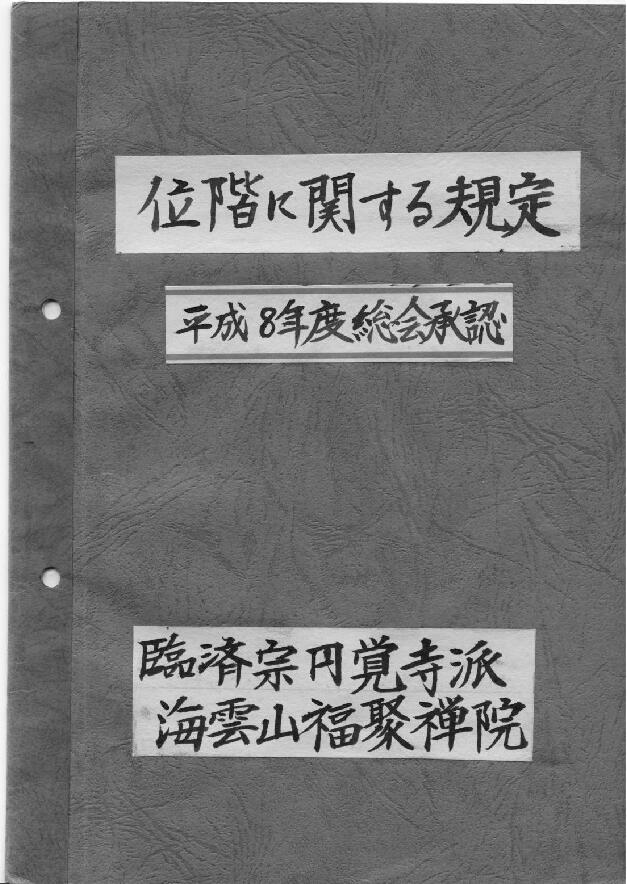 位階に関する規定
平成8年度総会承認
臨済宗円覚寺派
海雲山福聚禅院